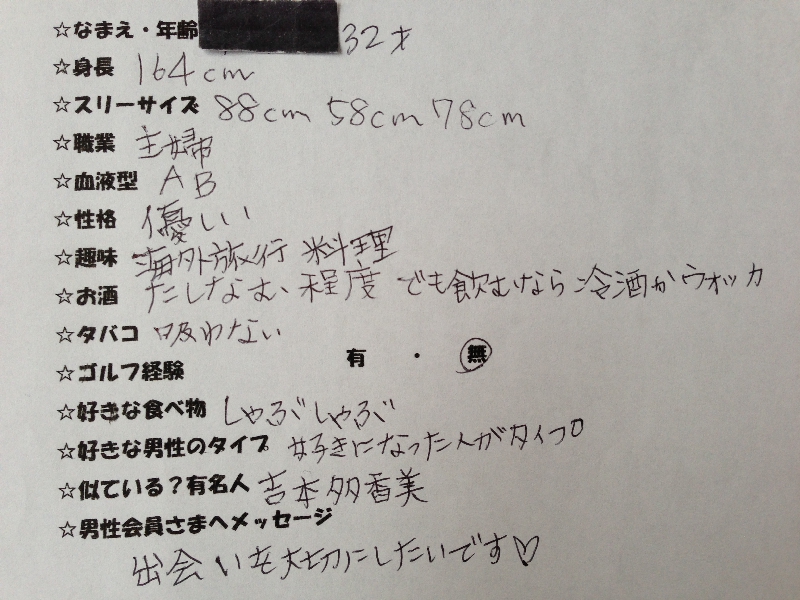 ☆なまえ・年齢 32才
☆身長 164cm
☆スリーサイズ 88cm 58cm 78cm
☆職業 主婦
☆血液型 AB
☆性格 優しい
☆趣味 海外旅行 料理
☆お酒 たしなむ、程度 でも飲むなら冷酒かウォッカ
☆タバコ 吸わない
☆ゴルフ経験 有・無
☆好きな食べ物 しゃぶしゃぶ
☆好きな男性のタイプ 好きになった人がタイプ
☆似ている?有名人 吉本多香美
☆男性会員さまへメッセージ
出会いを大切にしたいです♡